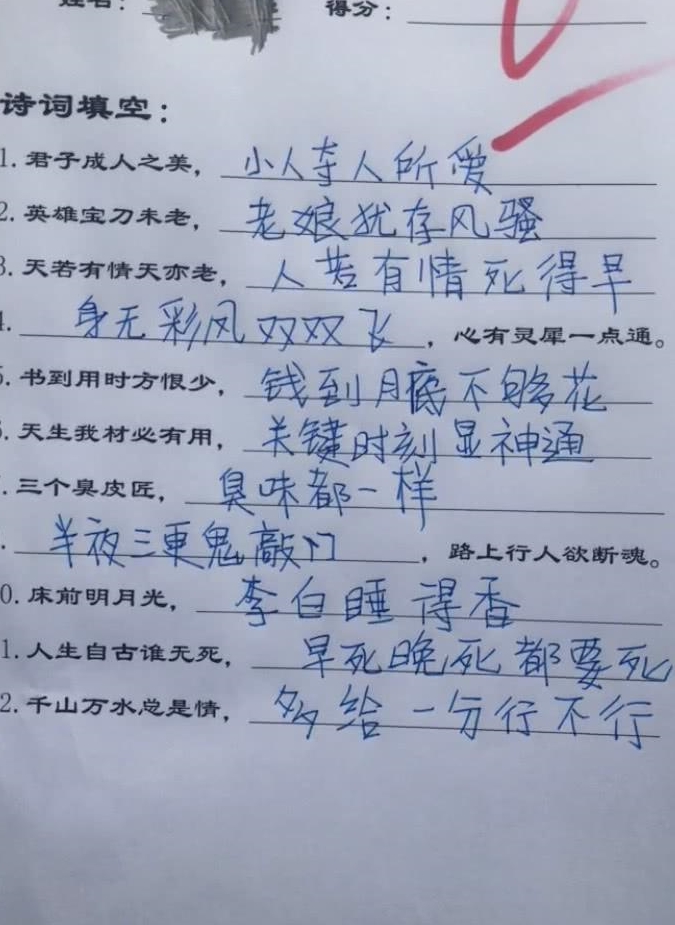 姓名: 得分:
诗词填空:
1. 君子成人之美, 小人夺人所爱
2. 英雄宝刀未老, 老娘犹存风骚
3. 天若有情天亦老, 人若有情死得早
. 身无彩风双双飞, 心有灵犀一点通。
5. 书到用时方恨少, 钱到月底不够花
6. 天生我材必有用, 关键时刻显神通
. 三个臭皮匠, 臭味都一样
. 半夜三更鬼敲门, 路上行人欲断魂。
0. 床前明月光, 李白睡得香
1. 人生自古谁无死, 早死晚死都要死
2. 千山万水总是情, 多给一分行不行